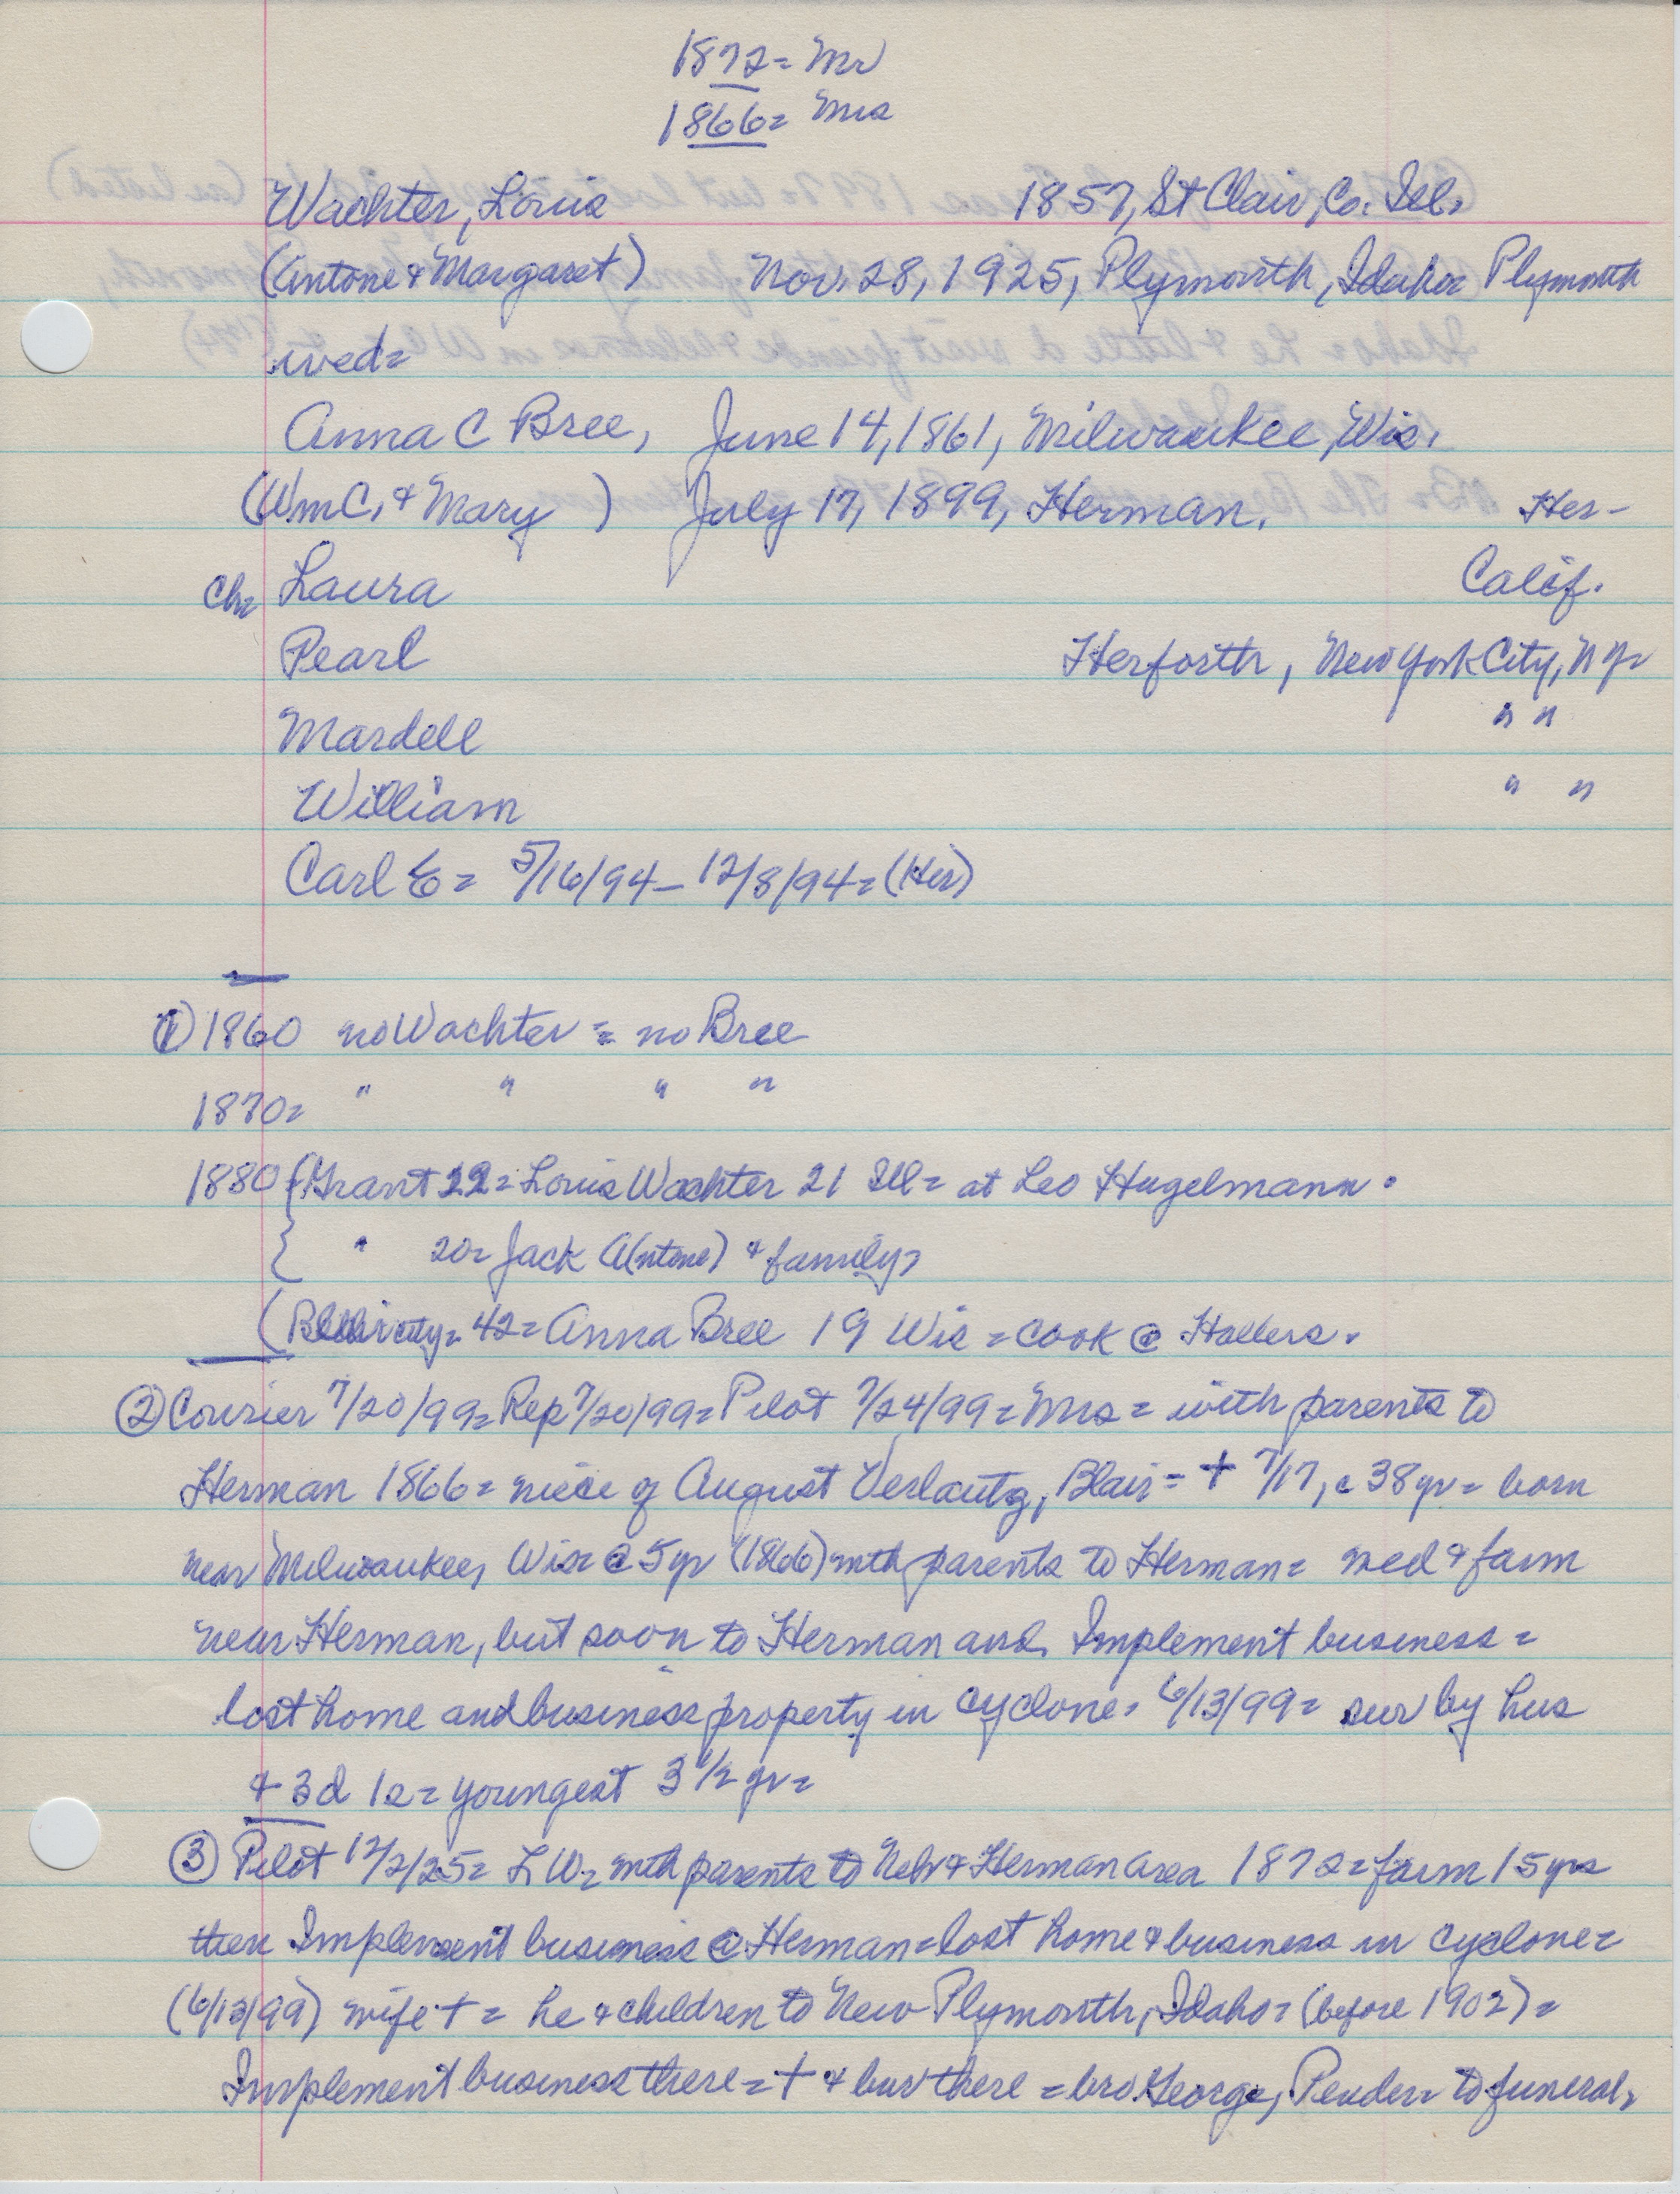 1872 = Mr
1866 = Mrs
Wachter, Louis 1857, St Clair, Co. Ill.
(Antone & Margaret) Nov. 28, 1925, Plymouth, Idaho = Plymouth
wed =
Anna C Bree, June 14, 1861, Milwaukee, Wis.
(Wm C. & Mary ) July 17, 1899, Herman. Her-
Ch = Laura Calif.
Pearl Herforth, New York City, N Y =
Mardell " "
William " "
Carl E = 5/16/94 - 12/8/94 = (Her)
① 1860 no Wachter = no Bree
1870 = " " " "
1880 { Grant 22 = Louis Wachter 21 Ill = at Leo Hugelmann.
{ " 20 = Jack A(ntone) & family =
( Blair city = 42 = Anna Bree 19 Wis = cook @ Hallers.
② Courier 7/20/99 = Rep 7/20/99 = Pilot 7/24/99 = Mrs = with parents to
Herman 1866 = niece of August Verlautz, Blair = + 7/17, c 38 yr = born
near Milwaukee, Wis = @ 5 yr (1866) with parents to Herman = wed & farm
near Herman, but soon to Herman and Implement business =
lost home and business property in cyclone, 6/13/99 = sur by hus
& 3d 1s = youngest 3 1/2 yr =
③ Pilot 12/2/25 = L W = with parents to Neb & Herman area 1872 = farm 15 yrs
then Implement business @ Herman = lost home & business in cyclone =
(6/13/99) wife + = he & children to New Plymouth, Idaho = (before 1902) =
Implement business there = + & bur there = bro George, Pender = to funeral,